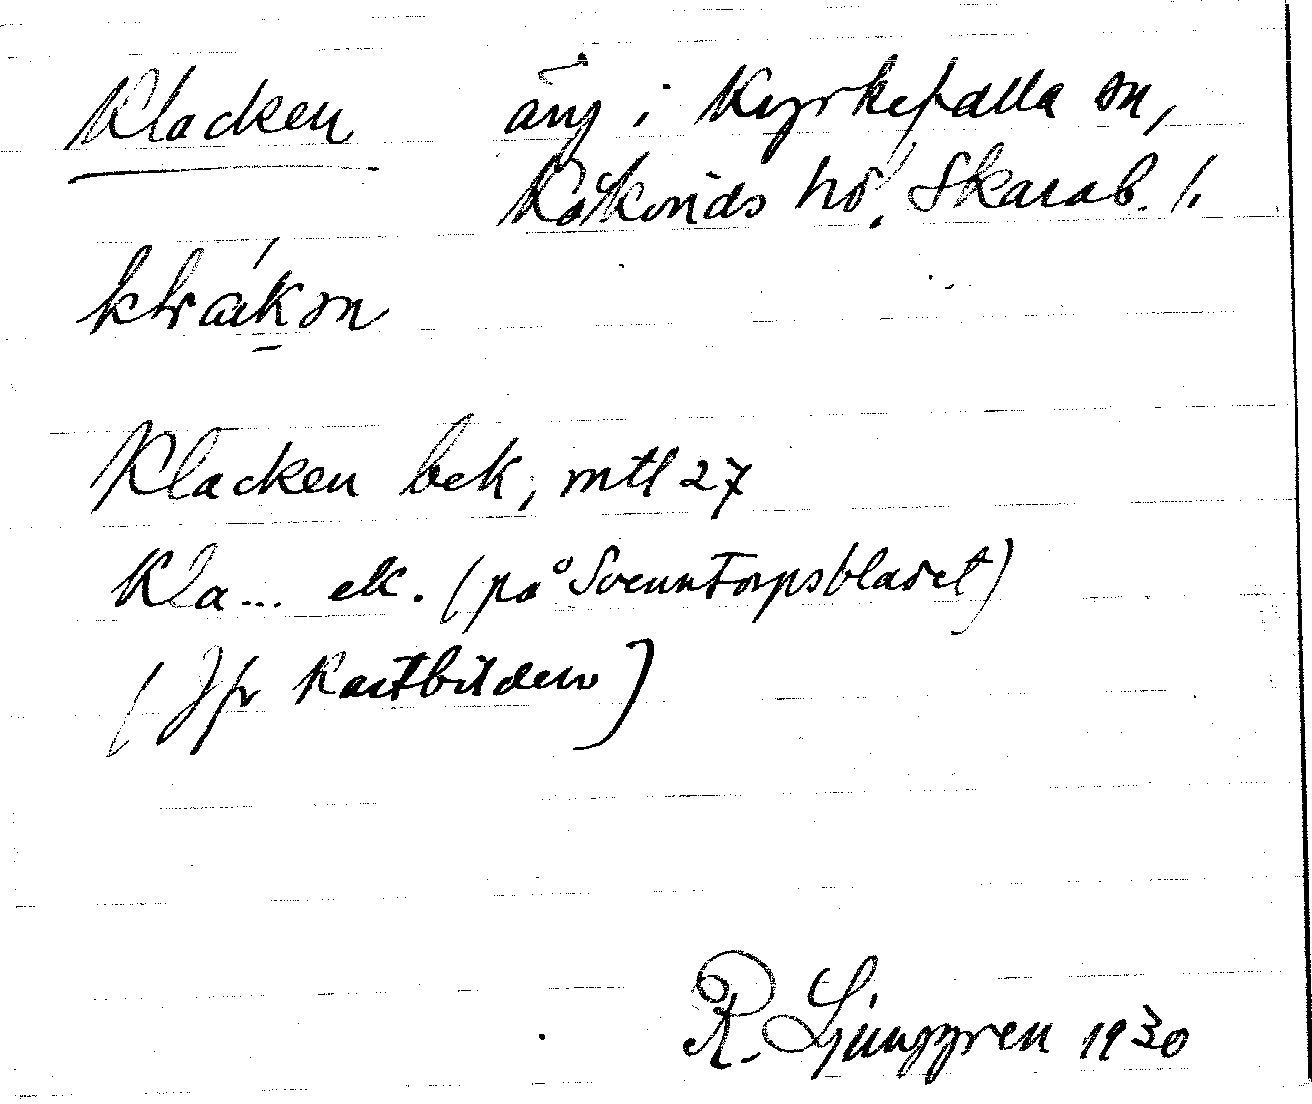 Klacken äng i Kyrkefalla sn,
Kåkinds hd, Skarab. l.
klrák sn
Klacken bek, mtl 27
Kla... ek. (på Svenntorpsbladet)
(Jfr Kartbilden)
R. Ljunggren 1930